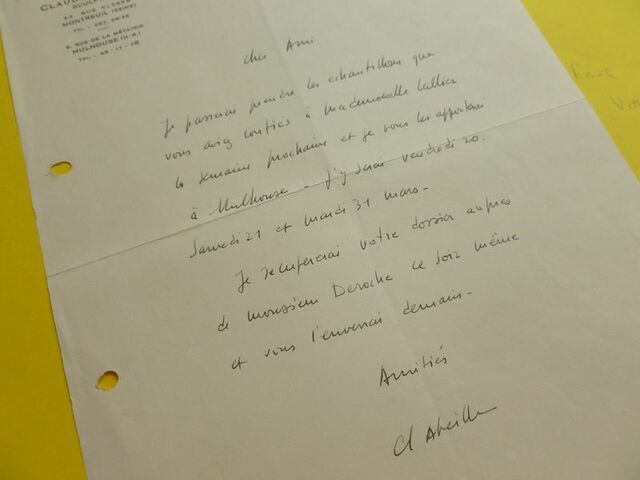 CLAUD
SCULPT
MONTREUIL (SEINE)
TEL.
RUE DE LA MÉTAIRIE
MULHOUSE (H.-R.)
TÉL.
cher Ami
Je passerai prendre les échantillons que
vous aviez confiés à mademoiselle Lallier
la semaine prochaine et je vous les apporterai
à Mulhouse - j'y serai vendredi 20.
Samedi 21 et mardi 31 mars -
Je recupererai votre dossier aupres
de monsieur Deroche ce soir même
et vous l'enverrai demain -
Amitiés
Cl Abeille